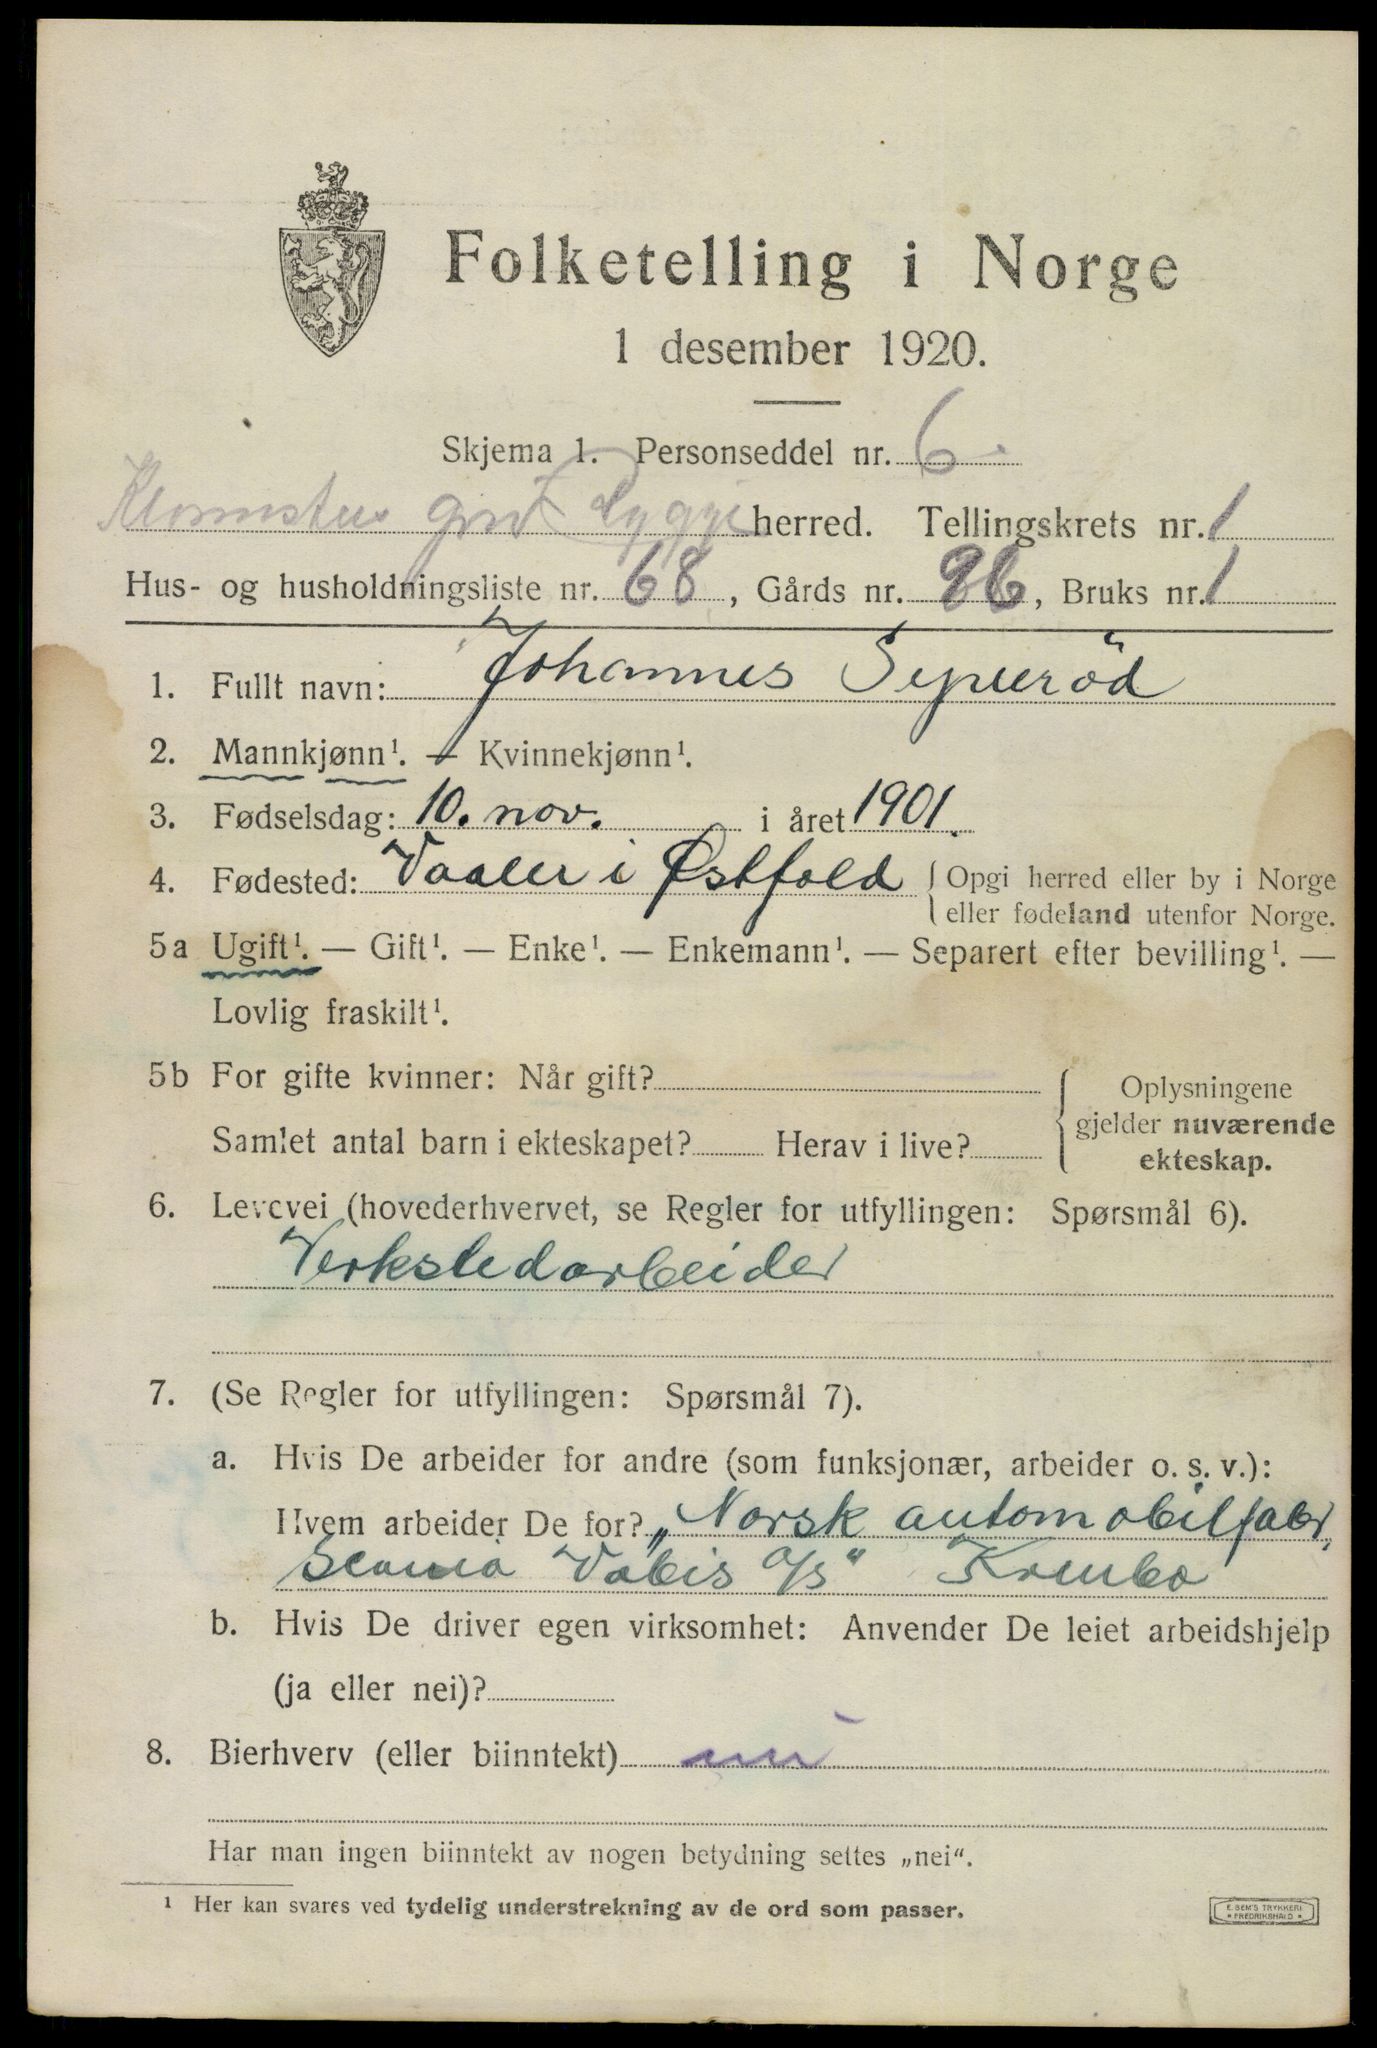 Folketelling i Norge
1 desember 1920.
Skjema 1. Personseddel nr. 6
Rygge herred. Tellingskrets nr. 1
Hus- og husholdningsliste nr. 68, Gårds nr. 96, Bruks nr. 1
1. Fullt navn: Johannes
2. Mannkjønn¹. — Kvinnekjønn¹.
3. Fødselsdag: 10. nov. i året 1901.
4. Fødested: Vaaler i Østfold { Opgi herred eller by i Norge
eller fødeland utenfor Norge.
5a Ugift¹. — Gift¹. — Enke¹. — Enkemann¹. — Separert efter bevilling¹. —
Lovlig fraskilt¹.
5b For gifte kvinner: Når gift?
Samlet antal barn i ekteskapet? Herav i live?
{ Oplysningene
gjelder nuværende
ekteskap.
6. Levevei (hovederhvervet, se Regler for utfyllingen: Spørsmål 6).
Verkstedarbeider
7. (Se Regler for utfyllingen: Spørsmål 7).
a. Hvis De arbeider for andre (som funksjonær, arbeider o. s. v.):
Hvem arbeider De for? „Norsk automobilfabr,
Scania Vabis a/s“ Krembo
b. Hvis De driver egen virksomhet: Anvender De leiet arbeidshjelp
(ja eller nei)?
8. Bierhverv (eller biinntekt) nei
Har man ingen biinntekt av nogen betydning settes „nei“.
¹ Her kan svares ved tydelig understrekning av de ord som passer.
E. SEM'S TRYKKERI
FREDRIKSHALD